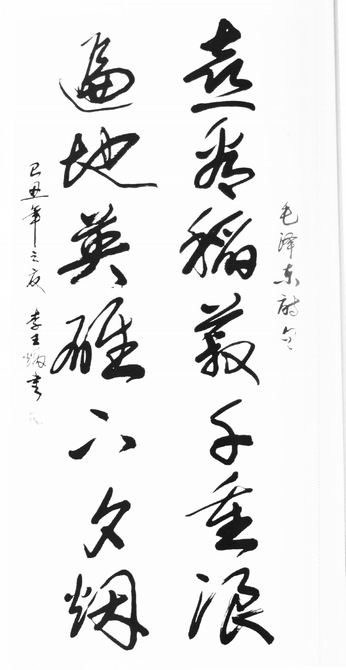 毛泽东诗句
喜看稻菽千重浪
遍地英雄下夕烟
己丑年之 李 书